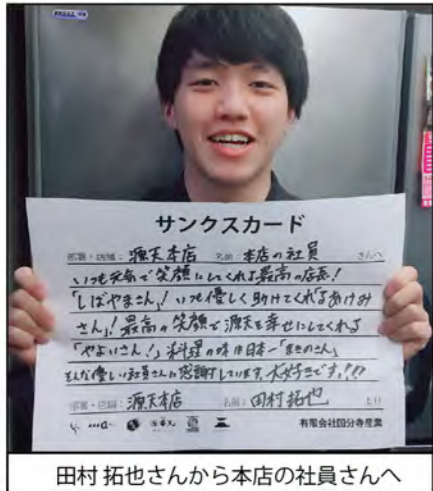 サンクスカード
部署・店舗：源天本店 名前：本店の社員 さんへ
いつも元気で笑顔にしてくれる最高の店長！
「しばやまさん」！いつも優しく助けてくれる「あけみ
さん」！最高の笑顔で源天を幸せにしてくれる
「やよいさん！」料理の味は日本一「まきのさん」
そんな優しい社員さんに感謝しています。大好きです！！！
部署・店舗：源天本店 名前：田村拓也 より
有限会社国分寺産業
田村 拓也さんから本店の社員さんへ